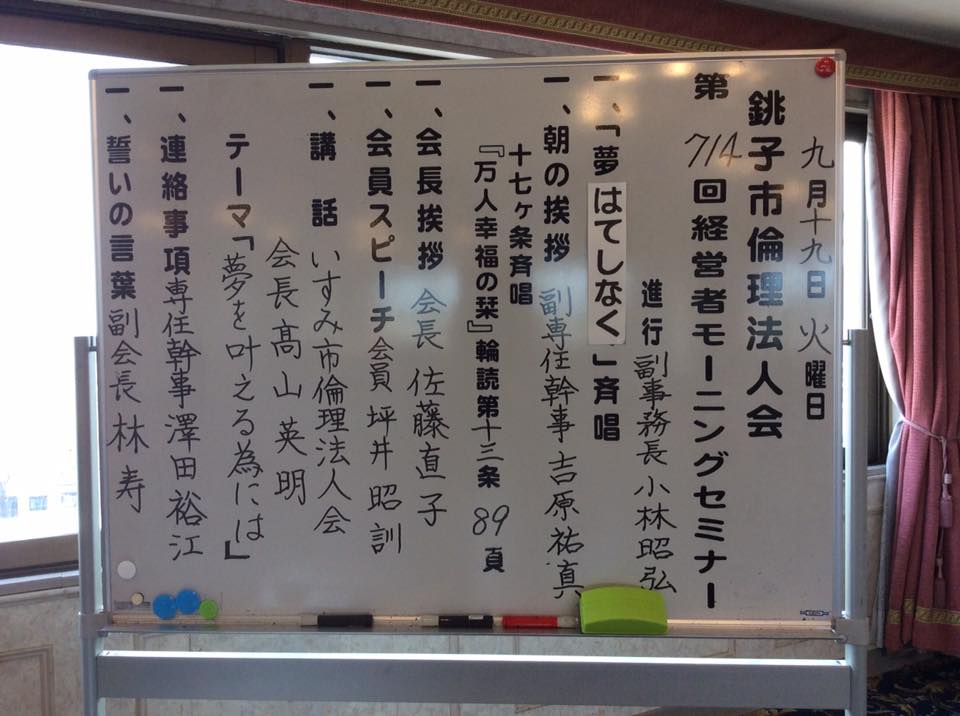 九月十九日 火曜日
銚子市倫理法人会
第714回経営者モーニングセミナー
進行 副事務長 小林昭弘
一、「夢はてしなく」斉唱
一、朝の挨拶 副専任幹事 吉原祐真
十七ヶ条斉唱
『万人幸福の栞』輪読第十三条 89頁
一、会長挨拶 会長 佐藤直子
一、会員スピーチ 会員 坪井昭訓
一、講話 いすみ市倫理法人会
会長 髙山英明
テーマ「夢を叶える為には」
一、連絡事項 専任幹事 澤田裕江
一、誓いの言葉 副会長 林寿